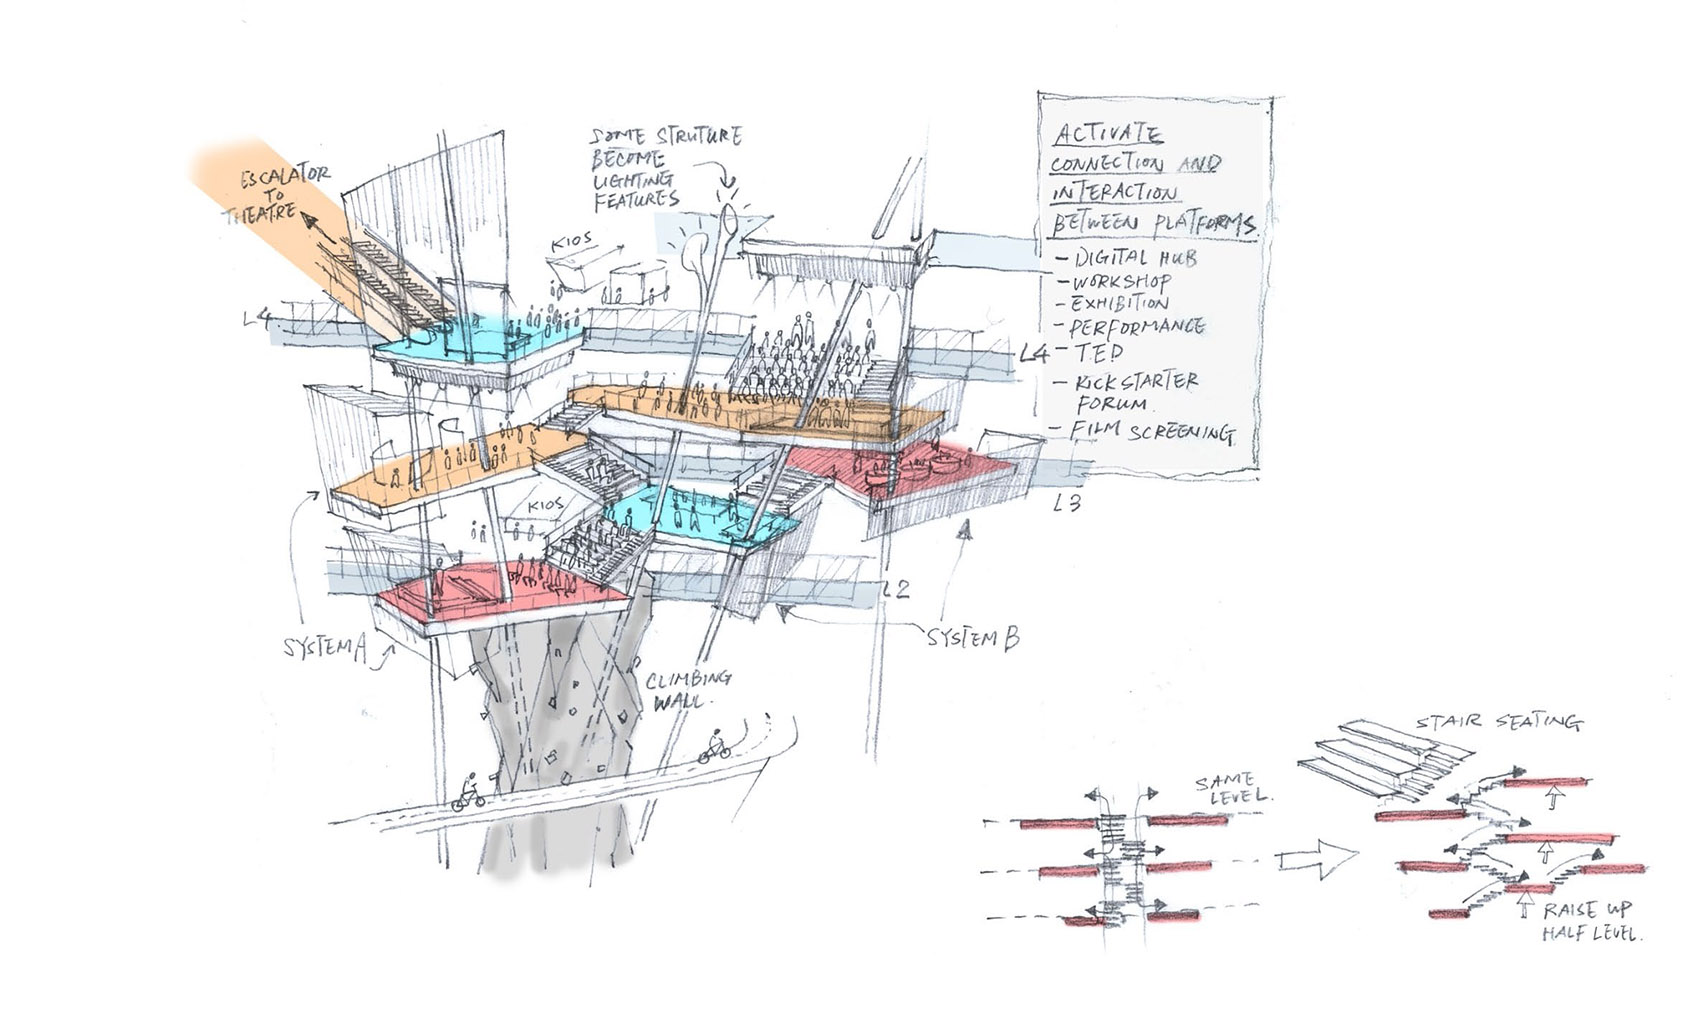 ESCALATOR
TO
THEATRE
SOME STRUTURE
BECOME
LIGHTING
FEATURES
KIOS
L4
L4
KIOS
L3
L2
SYSTEM A
SYSTEM B
CLIMBING
WALL.
ACTIVATE
CONNECTION AND
INTERACTION
BETWEEN PLATFORMS.
- DIGITAL HUB
- WORKSHOP
- EXHIBITION
- PERFORMANCE
- TED
- KICKSTARTER
FORUM.
- FILM SCREENING.
SAME
LEVEL.
STAIR SEATING
RAISE UP
HALF LEVEL.